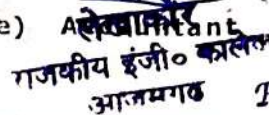 e) Accountant
लेखाकार
राजकीय इंजी० कालेज
आजमगढ